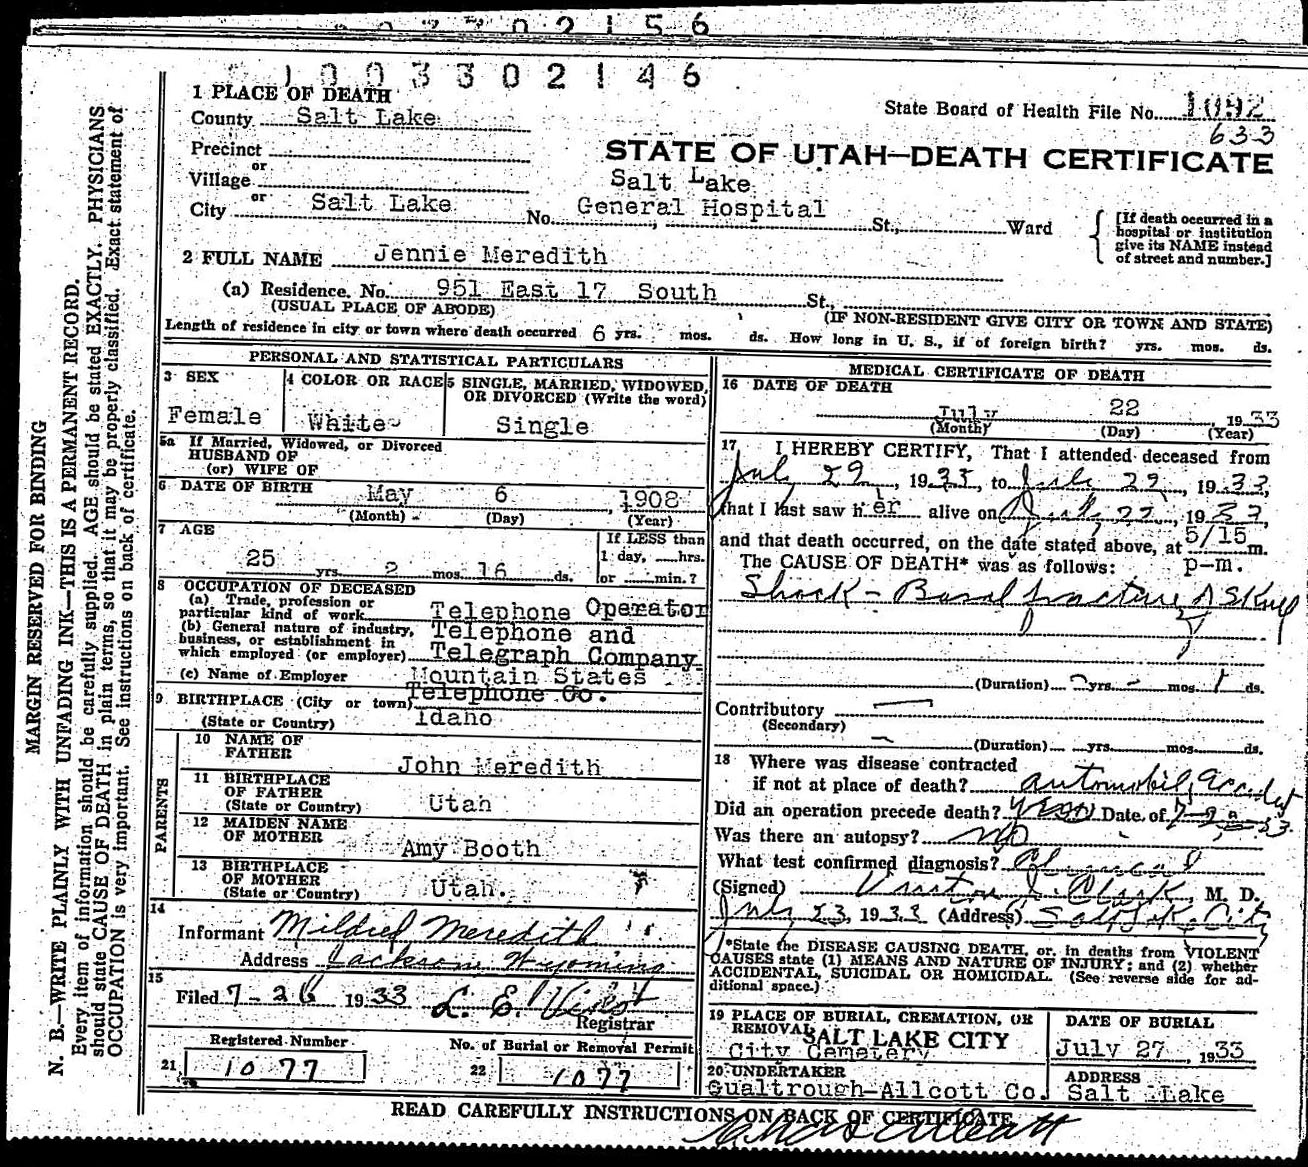 1003302146
1 PLACE OF DEATH
State Board of Health File No. 1092
County Salt Lake
633
Precinct
STATE OF UTAH—DEATH CERTIFICATE
or
Village
Salt Lake
or
City Salt Lake No. General Hospital St., Ward
[If death occurred in a
hospital or institution
give its NAME instead
of street and number.]
2 FULL NAME Jennie Meredith
(a) Residence. No. 951 East 17 South St.,
(USUAL PLACE OF ABODE) (IF NON-RESIDENT GIVE CITY OR TOWN AND STATE)
Length of residence in city or town where death occurred 6 yrs. mos. ds. How long in U. S., if of foreign birth? yrs. mos. ds.
MARGIN RESERVED FOR BINDING
N. B.—WRITE PLAINLY WITH UNFADING INK—THIS IS A PERMANENT RECORD.
Every item of information should be carefully supplied. AGE should be stated EXACTLY. PHYSICIANS
should state CAUSE OF DEATH in plain terms, so that it may be properly classified. Exact statement of
OCCUPATION is very important. See instructions on back of certificate.
PERSONAL AND STATISTICAL PARTICULARS
3 SEX
Female
4 COLOR OR RACE
White
5 SINGLE, MARRIED, WIDOWED,
OR DIVORCED (Write the word)
Single
5a If Married, Widowed, or Divorced
HUSBAND OF
(or) WIFE OF
6 DATE OF BIRTH May 6, 1908
(Month) (Day) (Year)
7 AGE
25 yrs. 2 mos. 16 ds.
If LESS than
1 day, hrs.
or min.?
8 OCCUPATION OF DECEASED
(a) Trade, profession or
particular kind of work Telephone Operator
(b) General nature of industry,
business, or establishment in
which employed (or employer)
Telephone and
Telegraph Company
(c) Name of Employer Mountain States
Telephone Co.
9 BIRTHPLACE (City or town)
(State or Country) Idaho
PARENTS
10 NAME OF
FATHER John Meredith
11 BIRTHPLACE
OF FATHER
(State or Country) Utah
12 MAIDEN NAME
OF MOTHER Amy Booth
13 BIRTHPLACE
OF MOTHER
(State or Country) Utah.
14
Informant Mildred Meredith
Address Jackson Wyoming
15
Filed 7-26 1933 L. E.
Registrar
Registered Number
21 1077
No. of Burial or Removal Permit
22 1077
MEDICAL CERTIFICATE OF DEATH
16 DATE OF DEATH
July 22, 1933
(Month) (Day) (Year)
17 I HEREBY CERTIFY, That I attended deceased from
July 22, 1933, to July 22, 1933,
that I last saw h er alive on July 22, 1933,
and that death occurred, on the date stated above, at 5/15 m.
The CAUSE OF DEATH* was as follows: p-m.
Shock - Basal fracture of Skull
(Duration) yrs. - mos. 1 ds.
Contributory
(Secondary)
(Duration) yrs. mos. ds.
18 Where was disease contracted
if not at place of death? automobile accident
Did an operation precede death? Date of
Was there an autopsy? no
What test confirmed diagnosis? Clinical
(Signed) Clark, M. D.
July 23, 1933 (Address) Salt Lk. City
*State the DISEASE CAUSING DEATH, or, in deaths from VIOLENT
CAUSES state (1) MEANS AND NATURE OF INJURY; and (2) whether
ACCIDENTAL, SUICIDAL OR HOMICIDAL. (See reverse side for ad-
ditional space.)
19 PLACE OF BURIAL, CREMATION, OR
REMOVAL SALT LAKE CITY
City Cemetery
DATE OF BURIAL
July 27, 1933
20 UNDERTAKER
Qualtrough-Allcott Co.
ADDRESS
Salt Lake
READ CAREFULLY INSTRUCTIONS ON BACK OF CERTIFICATE